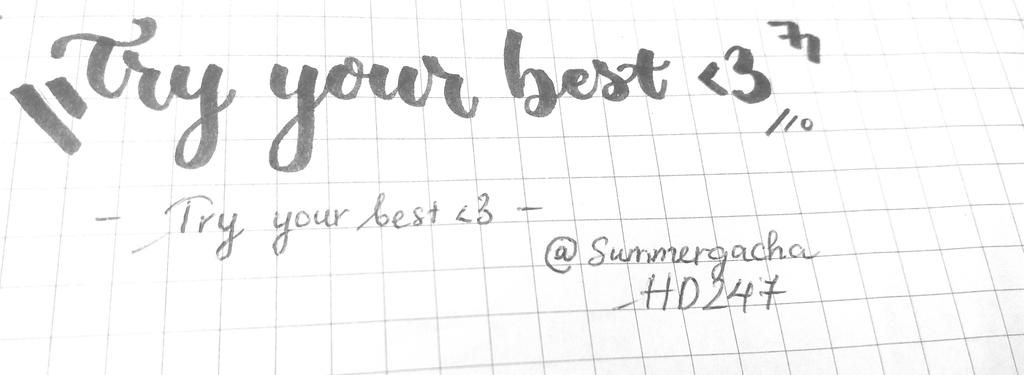 "Try your best <3"
- Try your best <3 -
@Summergacha
_HD247